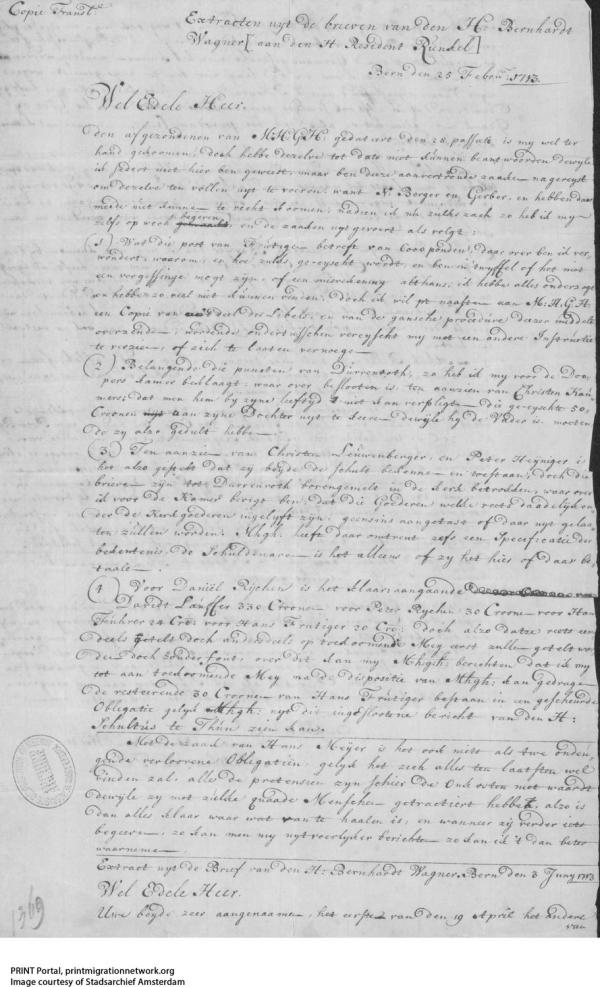 Copie Translt.
Extracten uyt de brieven van den Hr. Bernhardt
Wagner [aan den H. Resident Runckel]
Bern den 25 Febru. 1713.
Wel Edele Heer.
den afgezondenen van M.H.G.H. gedateert den 28 passato is my wel ter
hand gekoomen; doch hebbe dezelve tot dato niet kunnen beantwoorden dewyle
ik sedert niet hier ben geweest, maar ben deze aanvertroude zaaken nagereyst
om dezelve ten vollen uyt te voeren; want Nr. Borger en Gerber, en hebben daar
meede niet kunnen te recht koomen; nadien ik nu zulks zach zo heb ik my
zelfs op weck begeven, en de zaaken uytgevoert als volgt:
(1) Wat die post van Frutigen betreft van 6000 ponden, daar over ben ik ver-
wondert, waarom, en hoe zulks, geeyscht werdt, en ben in twyffel of het niet
een vergissinge mogt zijn, of een misrekening althans, ik hebbe alles onderzogt
en hebbe zo veel niet kunnen vinden; doch ik wil pr naasten aan M.H.G.H
een Copie van deel des Libels, en van de gansche procedure dezer middelen
overzenden; werdende ondertusschen vereyscht my met een andere Instructie
te voorzien, of zich te laaten vernoegen
(2) Belangende die puncten van Durrenroth, zo heb ik my voor de Doo-
pers Kamer beklaagt: waar over beslooten is, ten aanzien van Christen Kräu-
mers; dat men hem by zyne leeftyd niet kan verpligten die geeyschte 50
Croonen aan zyne Dochter uyt te keeren dewyle hy de Vader is, moeten
de zy alzo gedult hebben
(3) Ten aanzien van Christen Leuwenberger, en Peter Heyniger is
het alzo gestelt dat zy beyde de schult bekenne en toestaan; doch die
brieve zyn tot Durrenroth bovengemelt in de kerk betrokken, waar over
ik voor de Kamer berigt ben, dat die Goederen welke reets daadelyk on
der de Kerkgoederen ingelyft zyn, geensins aangetast of daar uyt gelaa-
ten zullen worden; Mhgh: heeft daar omtrent zelfs een Specificatie der
bekentenis, de Schuldenaren is het alleens of zy het hier of daar be-
taale.
(4) Voor Daniël Rychen is het klaar: aangaande
Davidt Lauffer 330 Croonen voor Peter Rychen 30 Croone voor Hans
Führer 24 Cro: voor Hans Frutiger 20 Cro: doch alzo datze reets een
deels getelt doch anderdeels op toekoomende Mey eerst zulle getelt wor
den doch zonder fout, over dit kan my Mhgh: berichten dat ik my
tot aan toekoomende Mey na de dispositie van Mhgh: kan gedragen
de resteerende 30 Croonen van Hans Frutiger bestaan in een gescheurde
Obligatie gelyk Mhgh: uyt die ingeslootene bericht van den H:
Schultus te Thun zien kan.
Met de zaak van Hans Meyer is het ook niet als twe onden-
gende verloorene Obligatien; gelyk het zich alles ten laatsten wel
vinden zal, alle de pretensien zyn schier die Onkosten niet waardt
dewyle zy met zulke quaade Menschen getracteert hebben, alzo is
dan alles klaar waar wat van te haalen is, en wanneer zy verder iets
begeeren, zo kan men my uytvoerlyker berichten zo kan ik 't dan beter
waarneemen.
Extract uyt de Brief van den Hr. Bernhardt Wagner Bern den 3 Juny 1713
Wel Edele Heer.
Uwe beyde zeer aangenaame, het eerste van den 19 April het andere
van
1369
PRINT Portal, printmigrationnetwork.org
Image courtesy of Stadsarchief Amsterdam